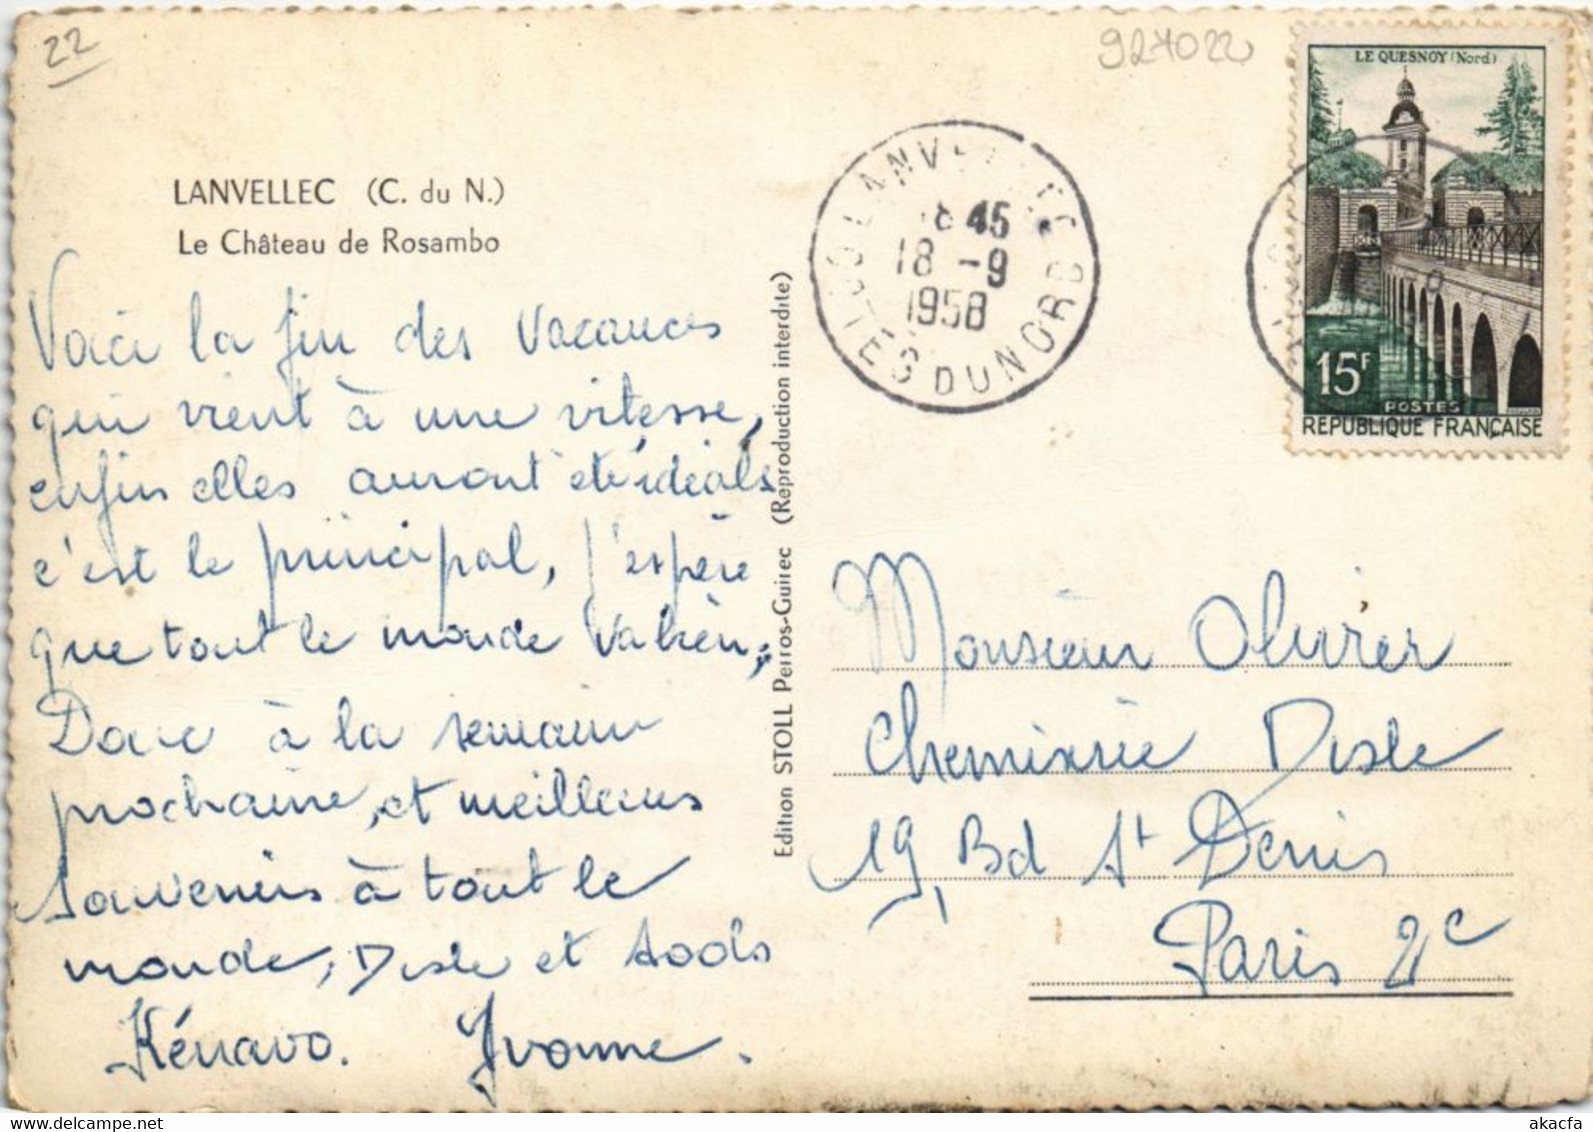 22
927022
LANVELLEC (C. du N.)
Le Château de Rosambo
Voici la fin des Vacances
qui vient à une vitesse,
enfin elles auront été idéals
c'est le principal, j'espère
que tout le monde va bien,
Donc à la semaine
prochaine, et meilleurs
Souvenirs à tout le
monde, Disle et
Kénavo. Yvonne.
Edition STOLL Perros-Guirec (Reproduction interdite)
LANVELLEC
45
18 -9
1958
COTES DU NORD
LE QUESNOY (Nord)
15F
POSTES
REPUBLIQUE FRANÇAISE
Monsieur Olivier
Chemiserie Disle
19, Bd St Denis
Paris 2e
www.delcampe.net
akacfa